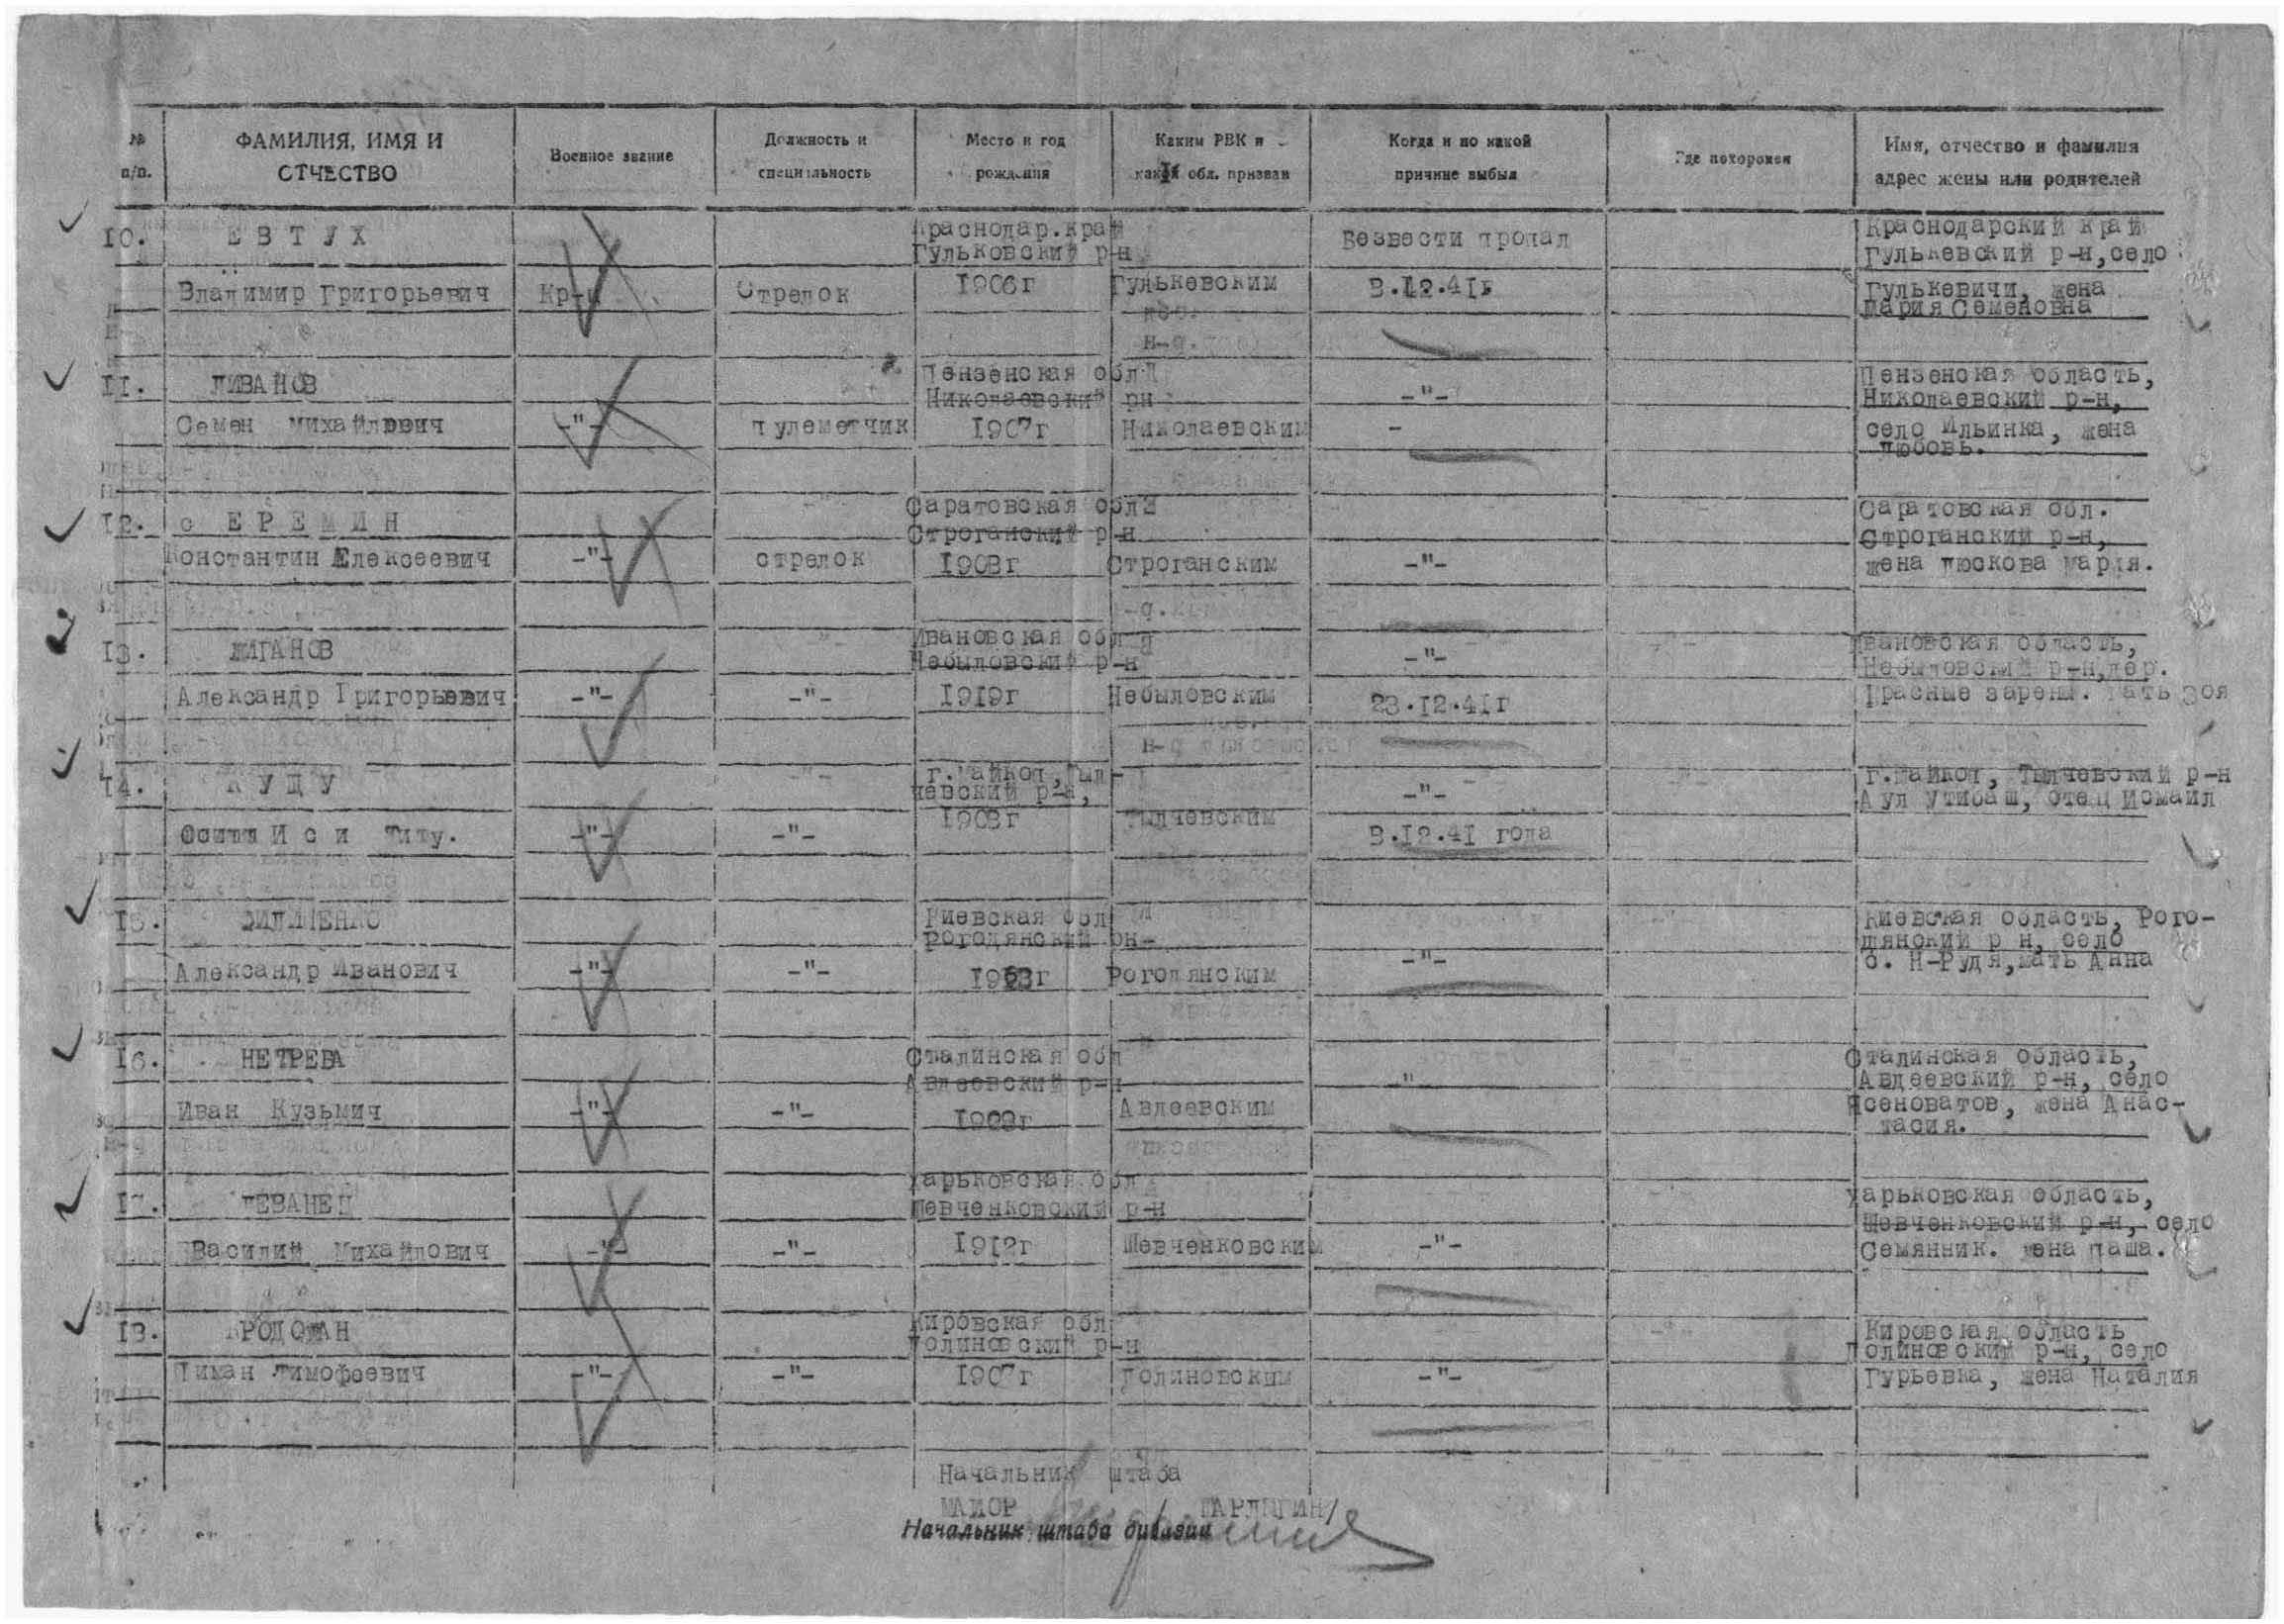 № п/п.
ФАМИЛИЯ, ИМЯ И ОТЧЕСТВО
Военное звание
Должность и специальность
Место и год рождения
Каким РВК и какой обл. призван
Когда и по какой причине выбыл
Где похоронен
Имя, отчество и фамилия адрес жены или родителей
10. ЕВТУХ Краснодар.край Безвести пропал Краснодарский край
Гульковский р-н Гулькевский р-н, село
Владимир Григорьевич Кр-ц Стрелок 1906г Гулькевским 3.12.41г Гулькевичи, жена
Мария Семеновна
11. ЛИВАНОВ Пензенская обл -"- Пензенская область,
Николаевский рн Николаевский р-н,
Семен Михайлович -"- пулеметчик 1907г Николаевским - село Ильинка, жена
Любовь.
12. ЕРЕМИН Саратовская обл Саратовская обл.
Строганский р-н Строганский р-н,
Константин Алексеевич -"- стрелок 1908г Строганским -"- жена Люскова Мария.
13. ЖИГАНОВ Ивановская обл -"- Ивановская область,
Небыловский р-н Небыловский р-н, дер.
Александр Григорьевич -"- -"- 1919г Небыловским 23.12.41г Красные зарены. Мать Зоя
14. КУДУ г.Майкоп, Тыл- -"- г.Майкоп, Тылчевский р-н
чевский р-н, Аул Утибаш, отец Исмаил
Иси Титу. -"- -"- 1908г Тылчевским 3.12.41 года
15. Киевская обл Киевская область, Рого-
Рогодянский рн- -"- дянский р н, село
Александр Иванович -"- -"- Рогодянским с. Н-Рудя, мать Анна
16. НЕТРЕБА Сталинская обл Сталинская область,
Авдеевский р-н -"- Авдеевский р-н, село
Иван Кузьмич -"- -"- 1909г Авдеевским Ясеноватов, жена Анас-
тасия.
17. ЛЕВАНЕЦ Харьковская обл Харьковская область,
Шевченковский р-н Шевченковский р-н, село
Василий Михайлович -"- -"- 1912г Шевченковским -"- Семянник. жена Паша.
18. Кировская обл Кировская область
Долиновский р-н Долиновский р-н, село
Тимофеевич -"- -"- 1907г Долиновским -"- Гурьевка, жена Наталия
Начальник штаба
МАЙОР
Начальник штаба дивизии